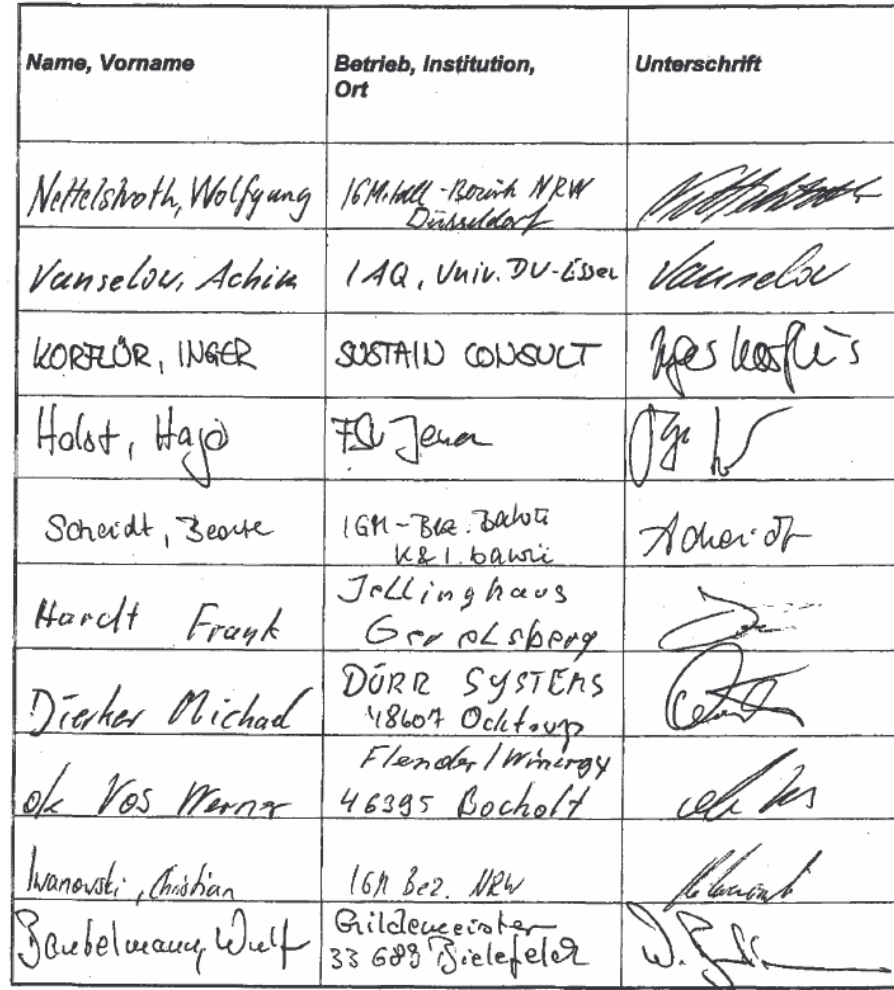 Name, Vorname
Betrieb, Institution,
Ort
Unterschrift
Nettelstroth, Wolfgang
IG Metall - Bezirk NRW
Düsseldorf
Vanselow, Achim
IAQ, Univ. DU-Essen
Vanselow
KORFLÜR, INGER
SUSTAIN CONSULT
Holst, Hajo
FSU Jena
Scheidt, Beate
IGM-Bez.
Scheidt
Hardt Frank
Jellinghaus
Gevelsberg
Dierker Michael
DÜRR SYSTEMS
48607 Ochtrup
de Vos Werner
Flender/Winergy
46395 Bocholt
Iwanowski, Christian
IGM Bez. NRW
Bantelmann, Wulf
Gildemeister
33689 Bielefeld